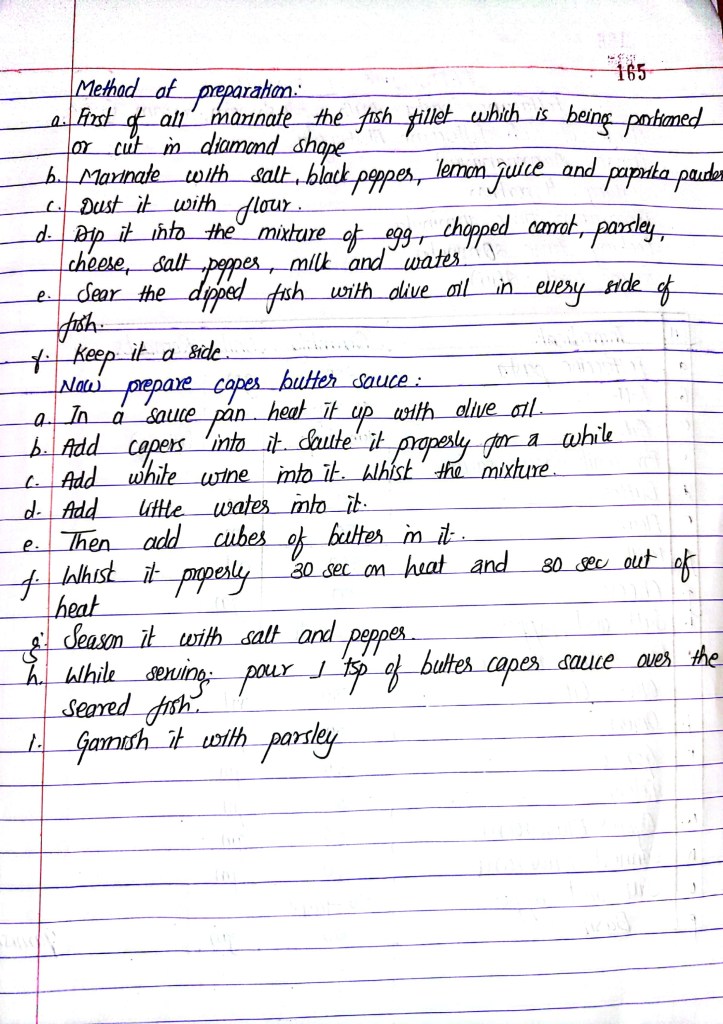 165
Method of preparation:
a. First of all marinate the fish fillet which is being portioned
or cut in diamond shape
b. Marinate with salt, black pepper, lemon juice and paprika powder
c. Dust it with flour.
d. Dip it into the mixture of egg, chopped carrot, parsley,
cheese, salt, pepper, milk and water.
e. Sear the dipped fish with olive oil in every side of
fish.
f. Keep it a side.
Now prepare caper butter sauce:
a. In a sauce pan heat it up with olive oil.
b. Add capers into it. Saute it properly for a while
c. Add white wine into it. Whist the mixture.
d. Add little waters into it.
e. Then add cubes of butter in it.
f. Whist it properly 30 sec on heat and 30 sec out of
heat
g. Season it with salt and pepper.
h. While serving; pour 1 tsp of butter caper sauce over the
seared fish.
i. Garnish it with parsley